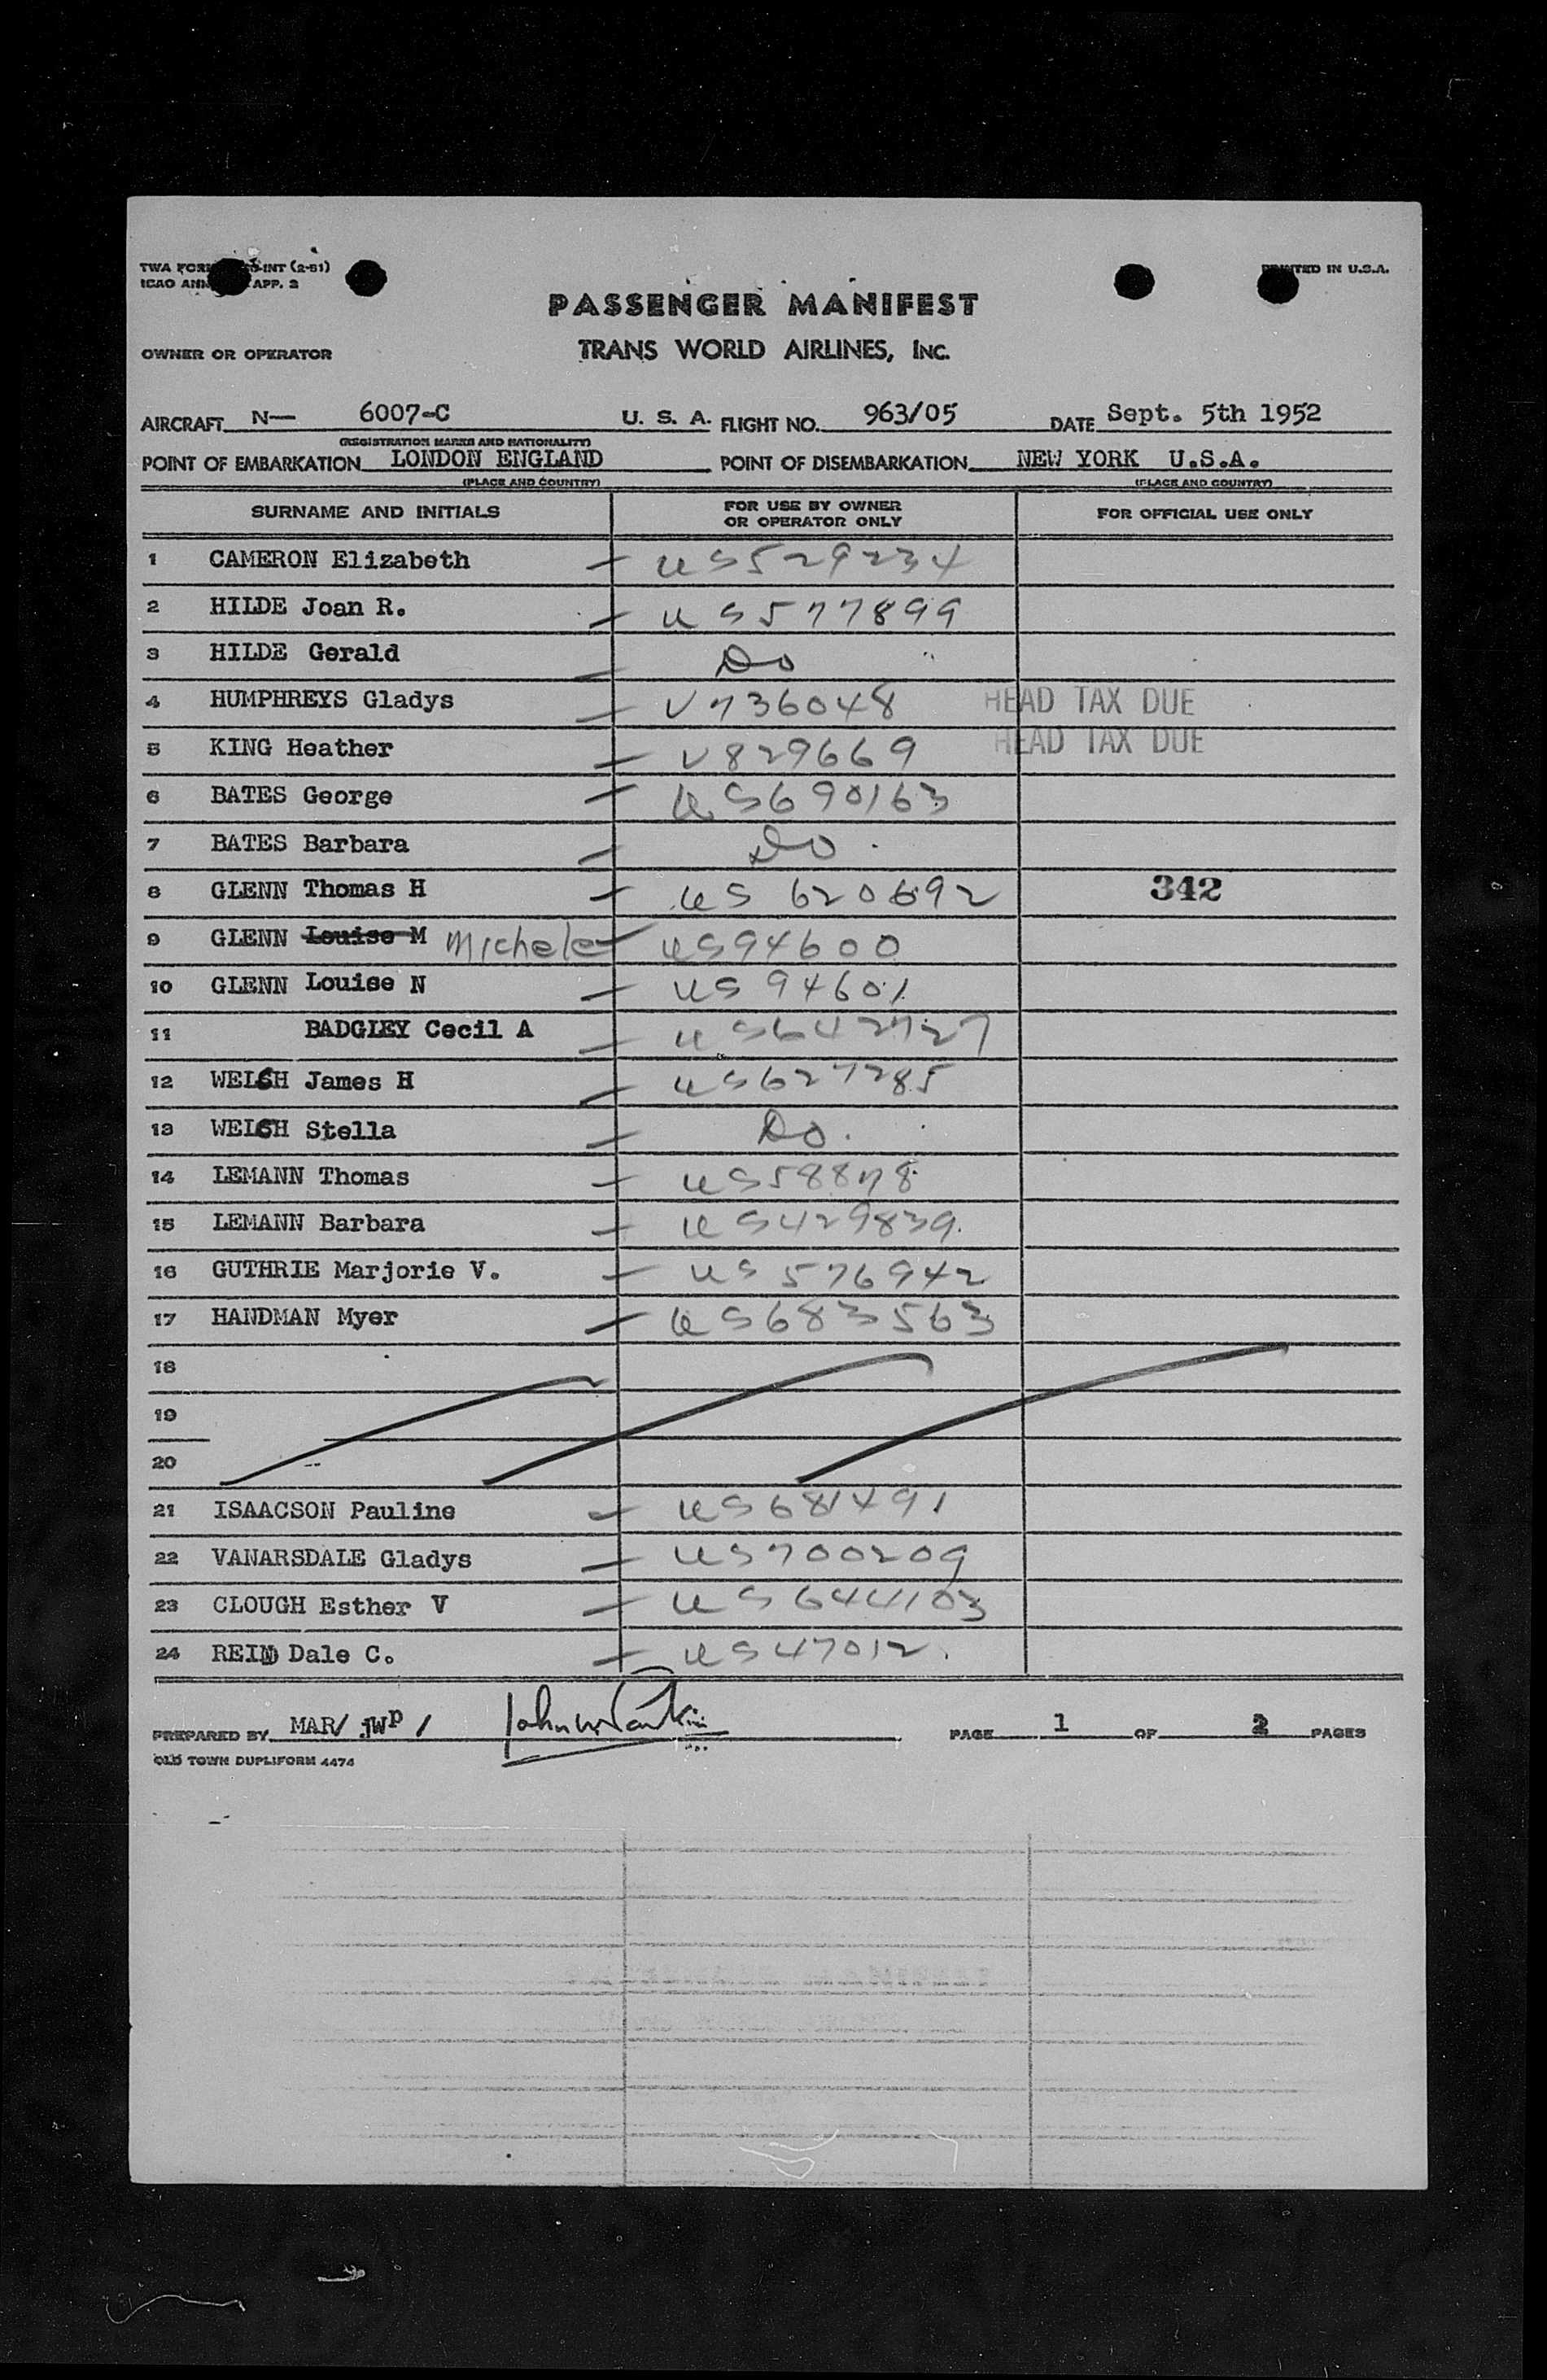 TWA FORM INT (2-51)
ICAO ANN APP. 2
PRINTED IN U.S.A.
PASSENGER MANIFEST
OWNER OR OPERATOR TRANS WORLD AIRLINES, INC.
AIRCRAFT N— 6007-C U. S. A. FLIGHT NO. 963/05 DATE Sept. 5th 1952
(REGISTRATION MARKS AND NATIONALITY)
POINT OF EMBARKATION LONDON ENGLAND POINT OF DISEMBARKATION NEW YORK U.S.A.
(PLACE AND COUNTRY) (PLACE AND COUNTRY)
SURNAME AND INITIALS FOR USE BY OWNER OR OPERATOR ONLY FOR OFFICIAL USE ONLY
1 CAMERON Elizabeth — US529234
2 HILDE Joan R. — US577899
3 HILDE Gerald — Do
4 HUMPHREYS Gladys — V736048 HEAD TAX DUE
5 KING Heather — V829669 HEAD TAX DUE
6 BATES George — US690163
7 BATES Barbara — Do.
8 GLENN Thomas H — US 620692 342
9 GLENN Louise M Michele — US94600
10 GLENN Louise N — US 94601
11 BADGLEY Cecil A — US642727
12 WELSH James H — US627285
13 WELSH Stella — Do.
14 LEMANN Thomas — US58878
15 LEMANN Barbara — US429839.
16 GUTHRIE Marjorie V. — US 576942
17 HANDMAN Myer — US683563
18
19
20 --
21 ISAACSON Pauline — US681491
22 VANARSDALE Gladys — US700209
23 CLOUGH Esther V — US644103
24 REID Dale C. — US47012.
PREPARED BY MAR/ JWP / PAGE 1 OF 2 PAGES
OLD TOWN DUPLIFORM 4474